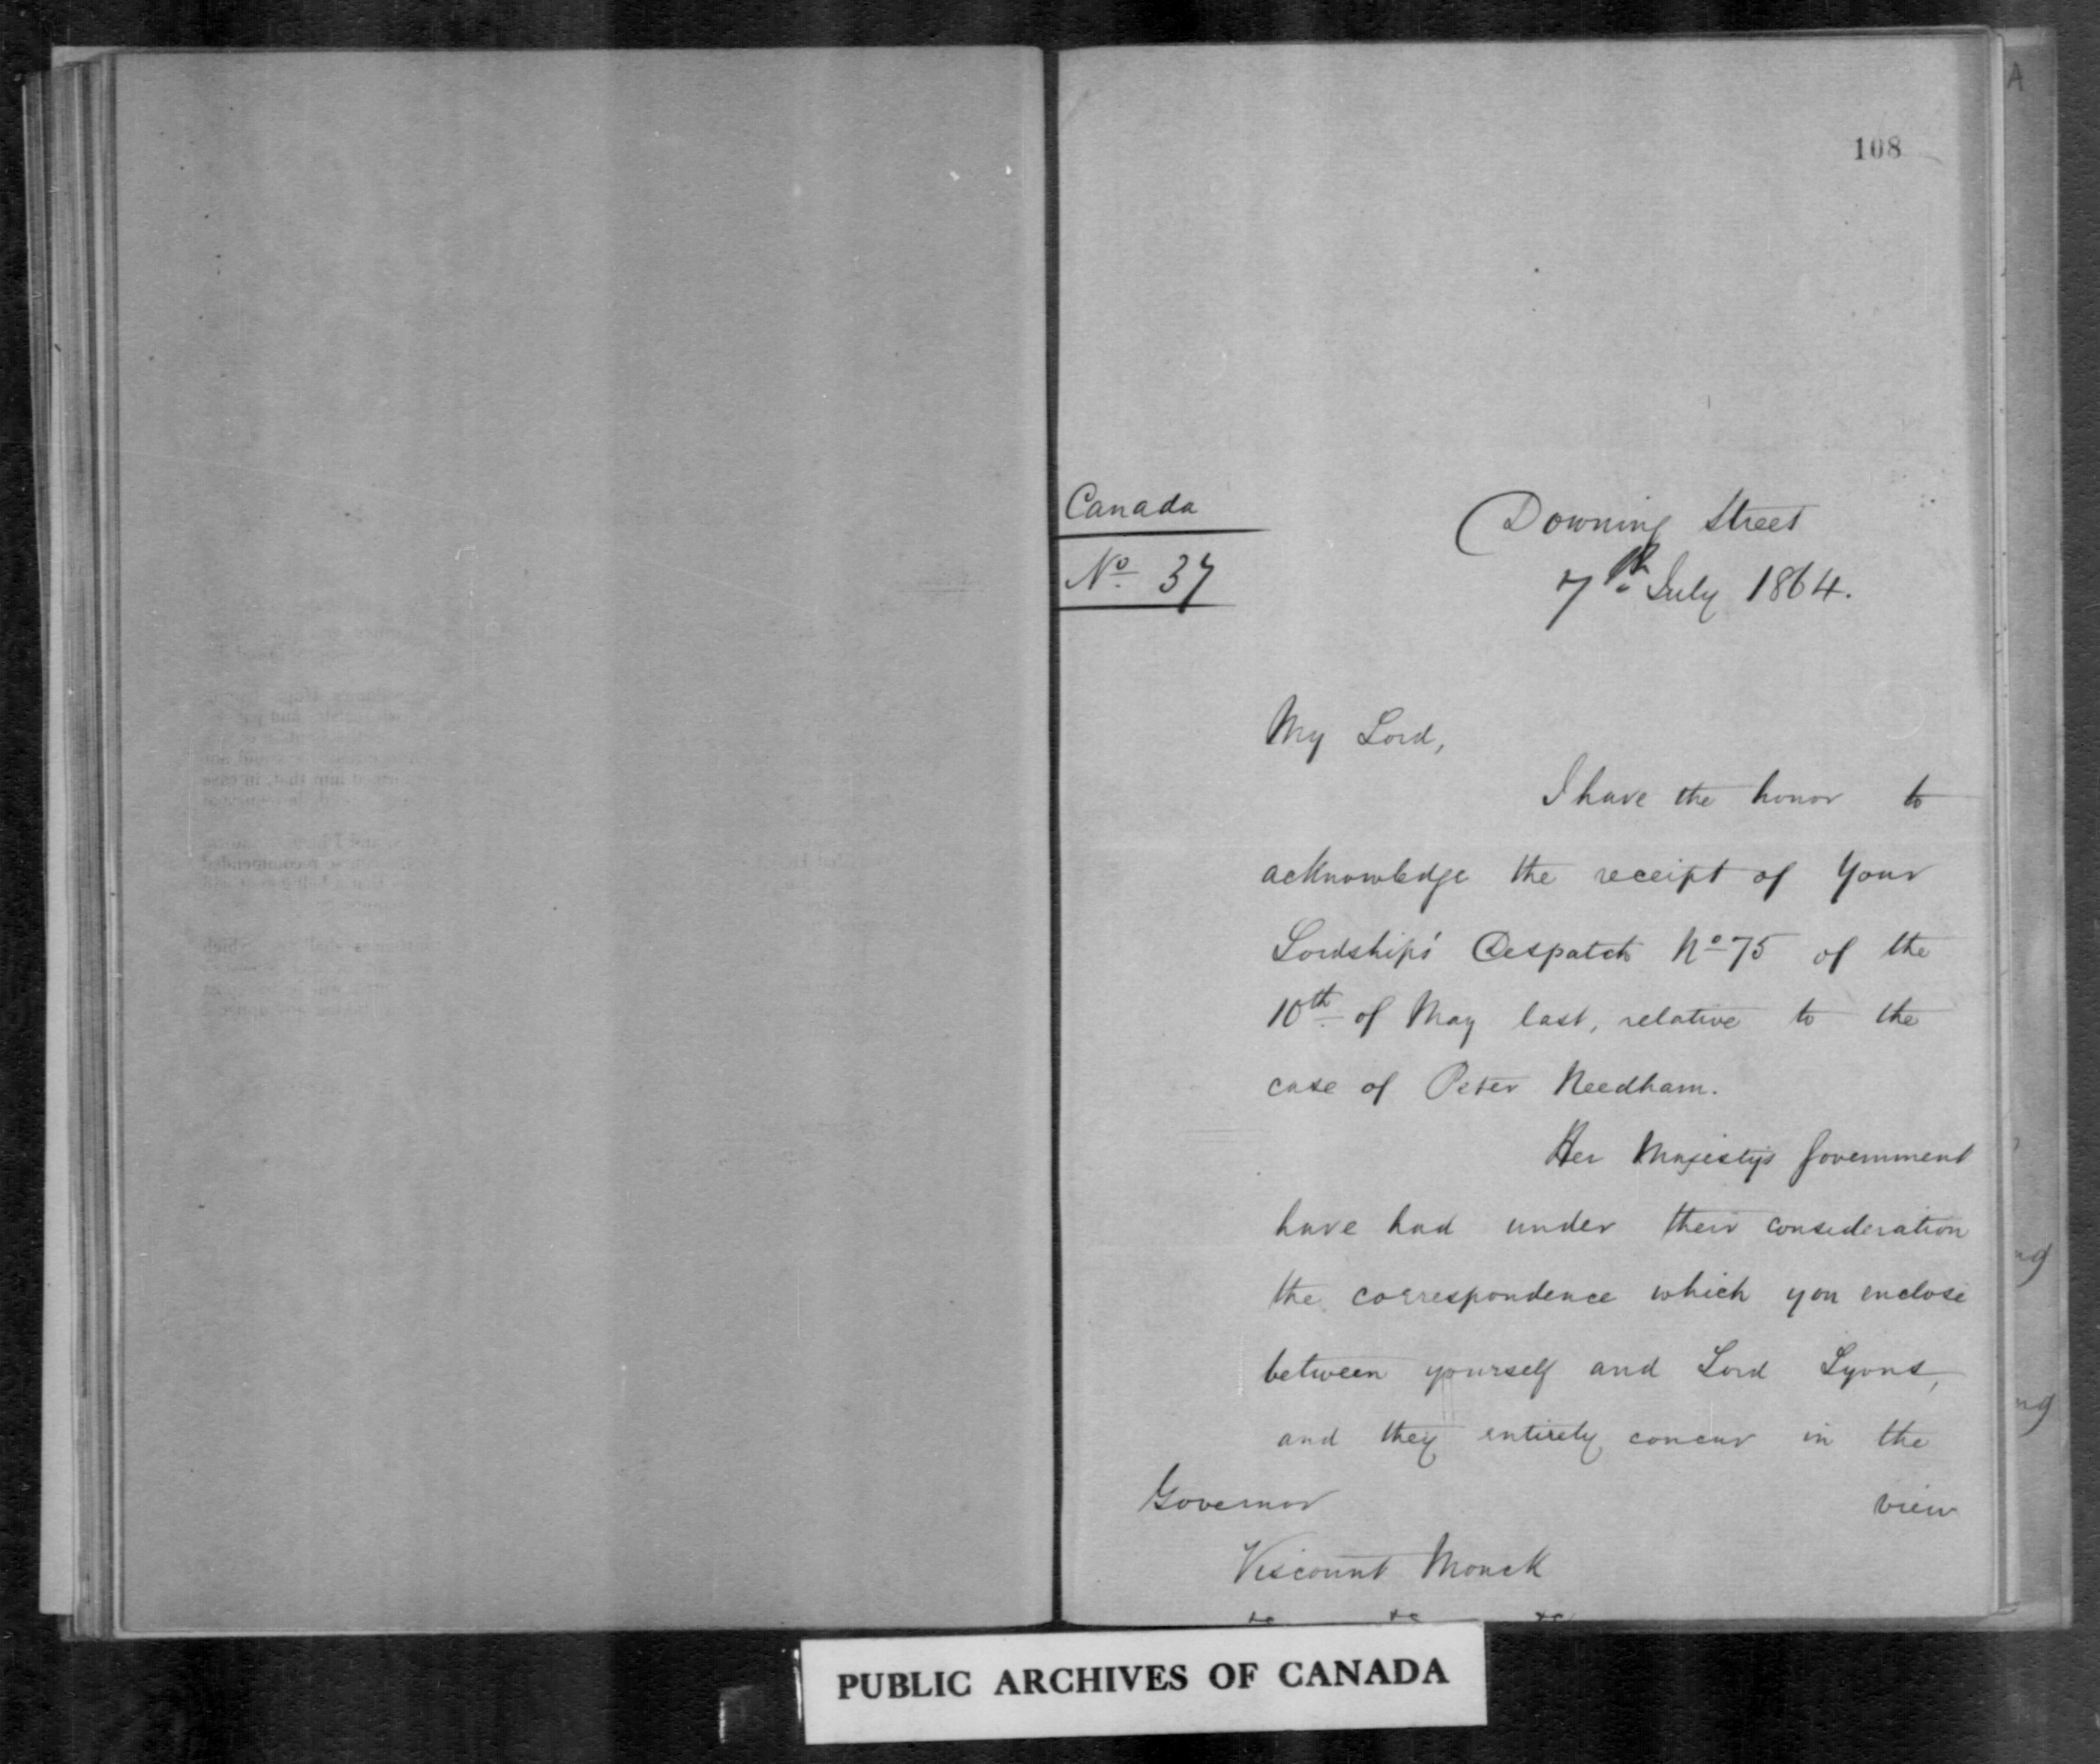 108
Canada
No 37
Downing Street
7th July 1864.
My Lord,
I have the honor to
acknowledge the receipt of Your
Lordship's Despatch No 75 of the
10th of May last, relative to the
case of Peter Needham.
Her Majesty's Government
have had under their consideration
the correspondence which you enclose
between yourself and Lord Lyons,
and they entirely concur in the
view
Governor
Viscount Monck
&c &c &c
PUBLIC ARCHIVES OF CANADA